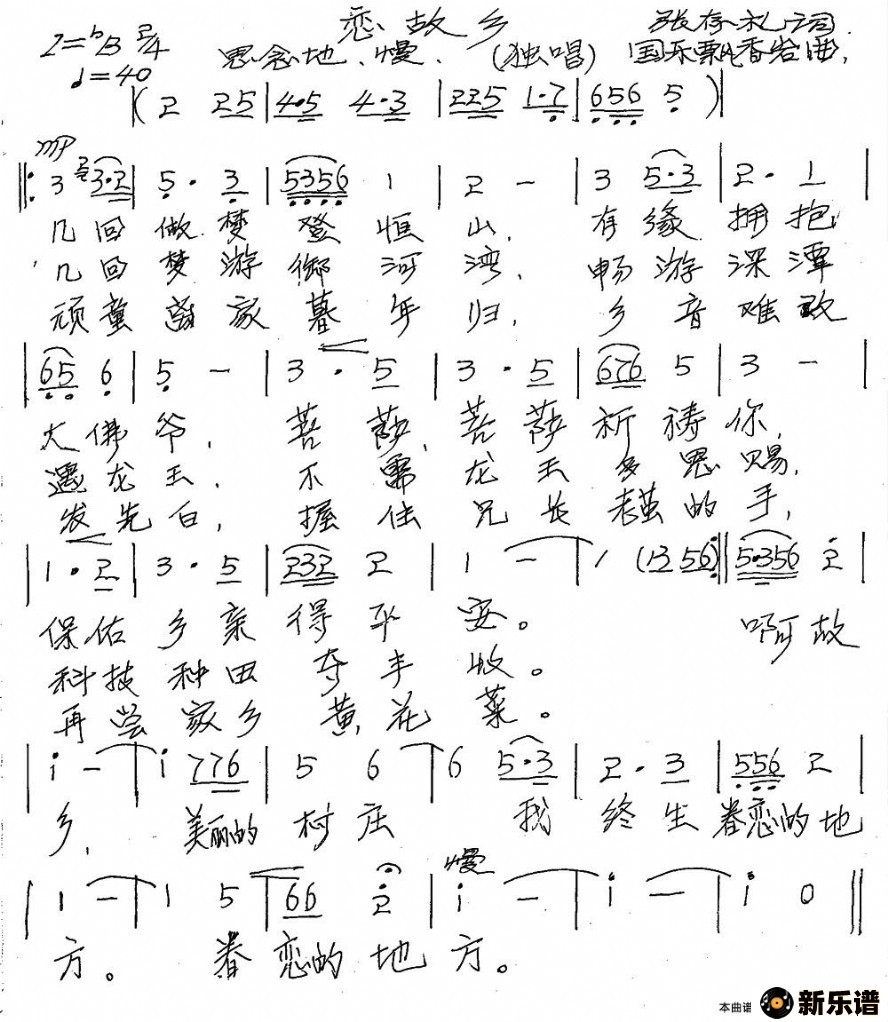 恋故乡
1=ᵇB 2/4 思念地、慢、(独唱) 张存礼词
♩=40 国乐飘香谷曲
|( 2 25 | 4·5 4·3 | 225 1·7 | 656 5 )|
mp
‖: 3 3·2 | 5· 3 | 5356 1 | 2 - | 3 5·3 | 2· 1 |
几回做梦登恒山, 有缘拥抱
几回梦游御河湾, 畅游深潭
顽童离家暮年归, 乡音难改
| 65 6 | 5 - | 3· 5 | 3· 5 | 676 5 | 3 - |
大佛爷, 菩萨, 菩萨祈祷你,
遇龙王, 不需龙王多恩赐,
发先白, 握住兄长老茧的手,
| 1· 2 | 3· 5 | 232 2 | 1 - | 1 (13 56) :‖ 5·356 2̇ |
保佑乡亲得平安。 啊故
科技种田夺丰收。
再尝家乡黄花菜。
| i - | i 776 | 5 6 | 6 5·3 | 2· 3 | 556 2 |
乡, 美丽的村庄 我终生眷恋的地
慢
| 1 - | 1 5 | 66 2̇ | i - | i - | i 0 ‖
方。 眷恋的地方。
本曲谱 新乐谱